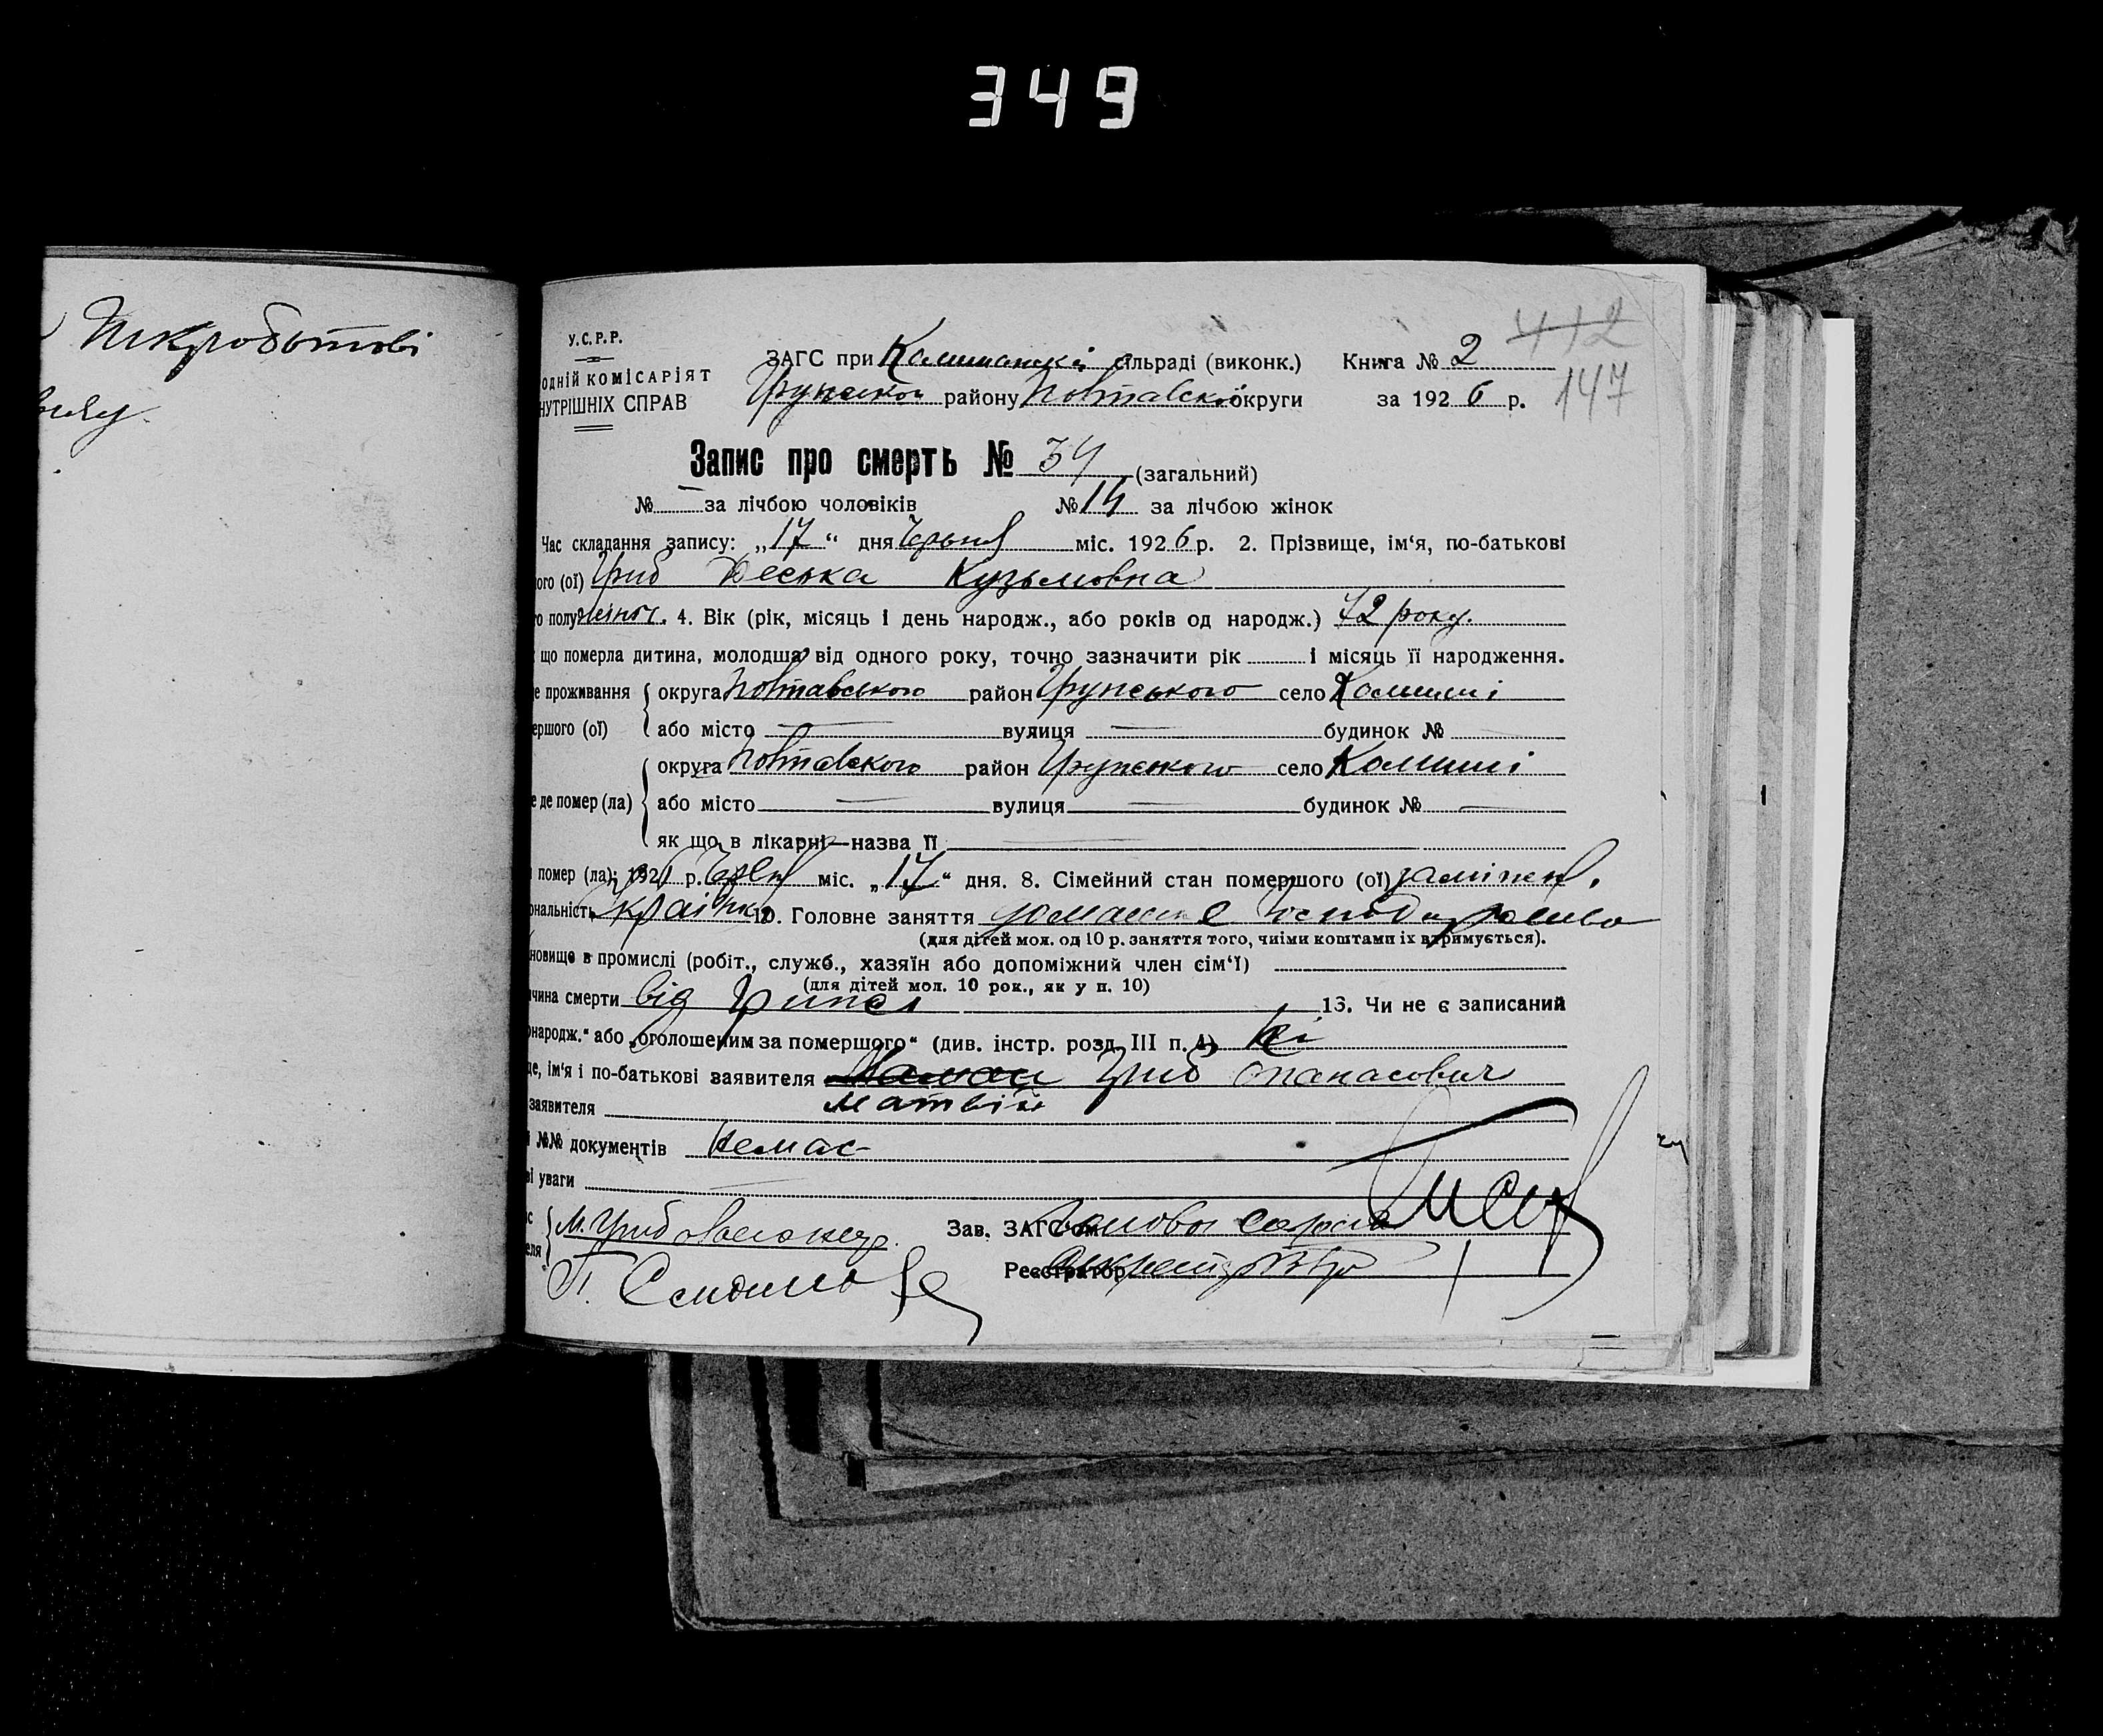 349
Шкробатові
У.С.Р.Р.
ЗАГС при сільраді (виконк.) Книга № 2
412
одній комісаріят
Грунської району Полтавської округи за 1926 р.
147
нутрішніх справ
Запис про смерть № 34 (загальний)
№ — за лічбою чоловіків № 14 за лічбою жінок
Час складання запису: „17“ дня Червня міс. 1926 р. 2. Прізвище, ім'я, по-батькові
ого (ої) Гриб Деська Кузьмовна
го полу жіноч. 4. Вік (рік, місяць і день народж., або років од народж.) 72 року.
що померла дитина, молодша від одного року, точно зазначити рік і місяць її народження.
е проживання округа Полтавського район Грунського село Комиші
ершого (ої) або місто — вулиця — будинок №
округа Полтавского район Грунського село Комиші
е де помер (ла) або місто — вулиця — будинок № —
як що в лікарні—назва її
помер (ла): 1926 р. Червн міс. „17“ дня. 8. Сімейний стан помершого (ої) заміжн.
ональність Українка 10. Головне заняття домашне господарство
(для дітей мол. од 10 р. заняття того, чиїми коштами їх втримується).
новище в промислі (робіт., служб., хазяїн або допоміжний член сім'ї)
(для дітей мол. 10 рок., як у п. 10)
чина смерти від 13. Чи не є записаний
онародж.“ або „оголошеним за помершого“ (див. інстр. розд. III п. 4) Ні
це, ім'я і по-батькові заявителя Гриб Опанасович
Матвій
заявителя
і №№ документів Немає
ві уваги —
М. Гриб Зав. ЗАГС'ом Голова
еля
П. Реєстратор